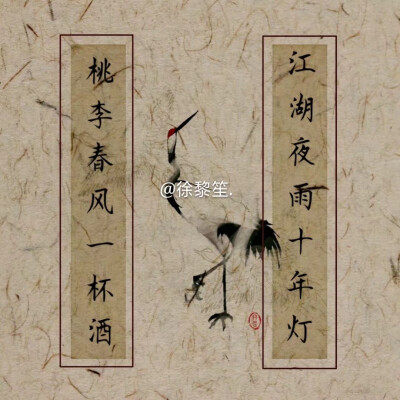 桃李春风一杯酒
@徐黎笙.
江湖夜雨十年灯